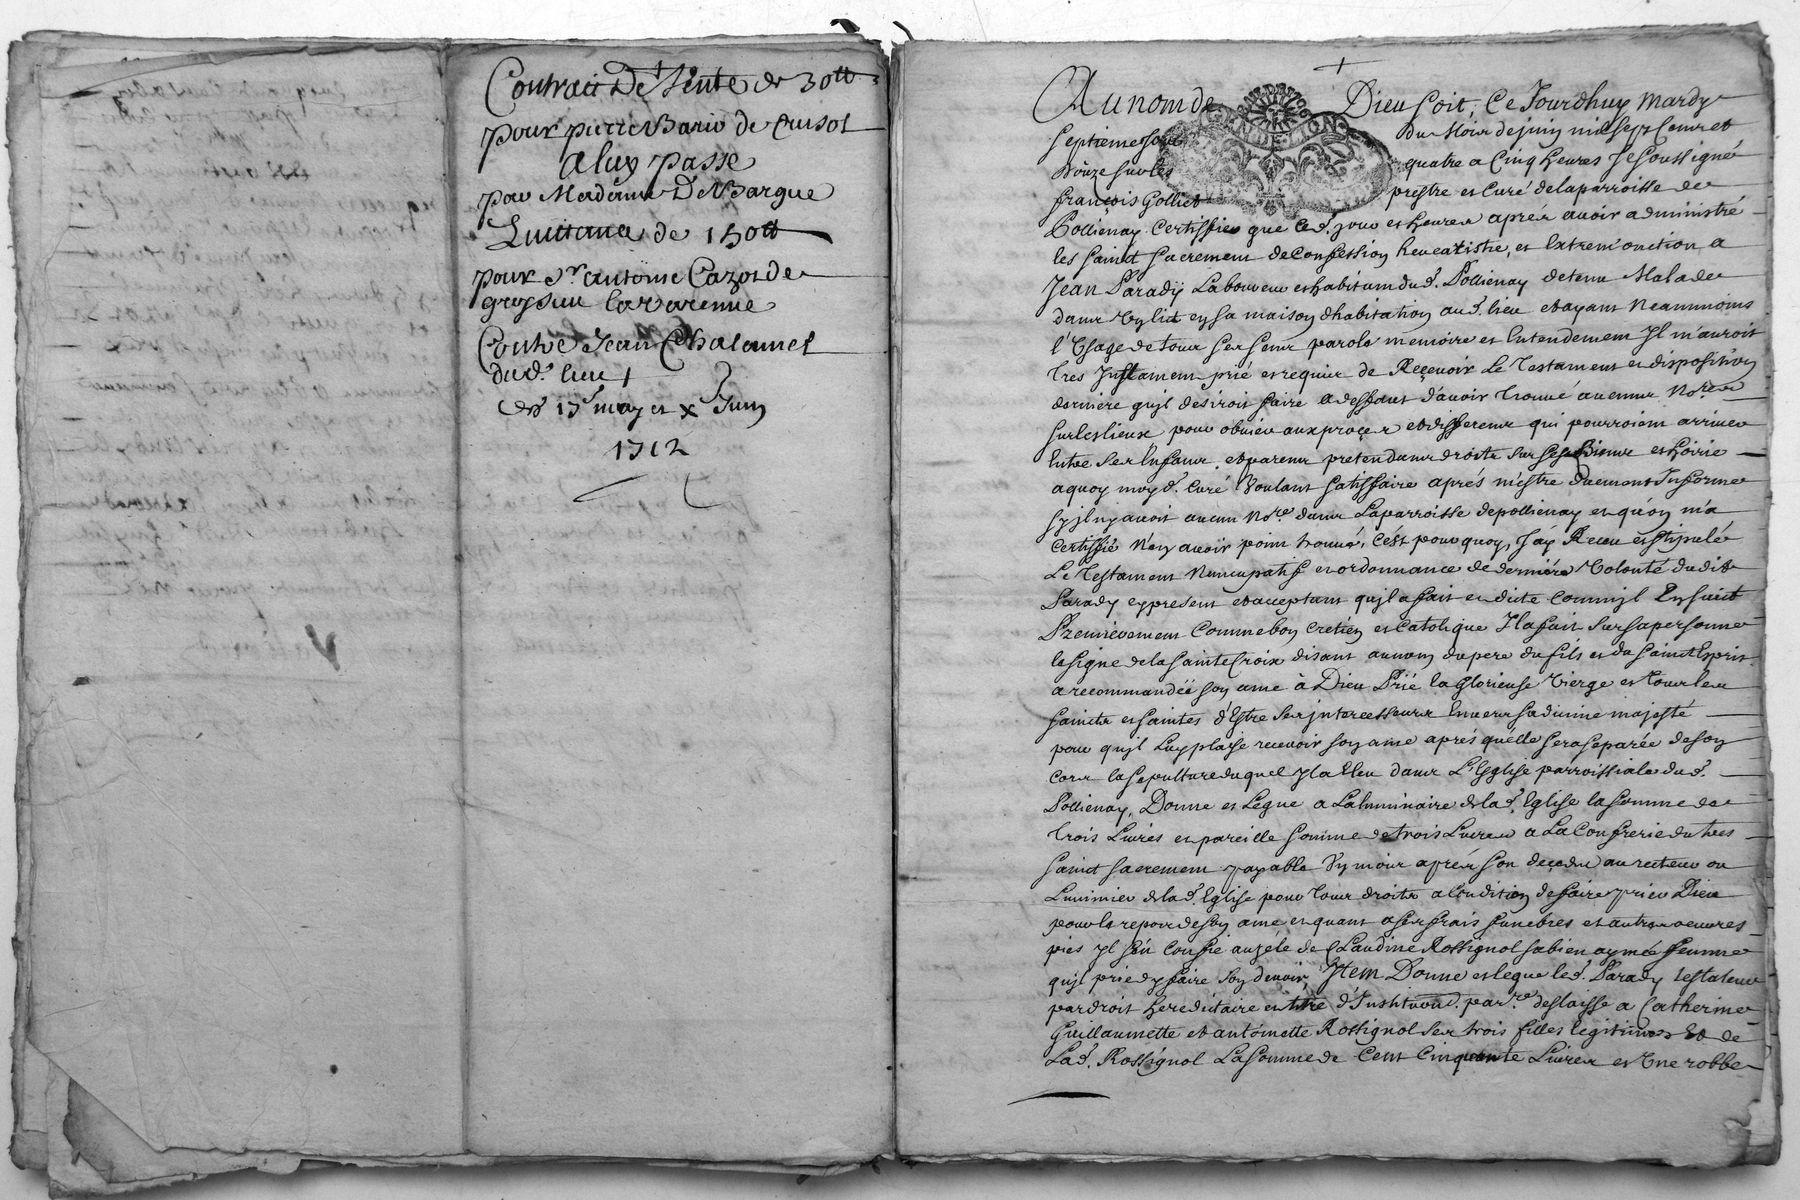 Contract De Vente de 30tt
pour pierre Bario de Cuisot
a luy Passé
par Madame De Bargue
Quittance de 150tt
pour Sr antoine Cazot de
la varenne
Contre Jean Chalamet
dud. lieu
des 17 may et x Juin
1712
Au nom de Dieu soit, Ce Jourdhuy Mardy
septieme jour du Mois de juin mil sept Cent et
Douze sur les quatre a Cinq heures Je soussigné
françois Golliet prestre et Curé de la parroisse de
Pollienay Certiffie que led. jour et heures aprés avoir administré
les saint sacrement de Confession heucaristie, et Extremonction a
Jean Paradÿ Laboureur et habitant dud. Pollienay detenu Malade
dans Un lict en sa maison dhabitation aud. lieu et ayant Neanmoins
l'Usage de tous ses sens parole memoire et Entendement Il m'auroit
tres Instament prié et requis de Reçevoir Le Testament et disposition
derniere quil desiroit faire a deffaut d'avoir trouvé aucuns No.res
sur les lieux pour obvier aux proçes et differens qui pourroient arriver
Entre ses Enfans et parens pretendans droits sur ses Biens et hoirie
a quoy moy d. Curé Voulant satisfaire aprés m'estre duement Informé
sy il ny avoit aucun No.re dans La parroisse de pollienay et qu'on m'a
Certiffié N'en avoir point trouvé, C'est pourquoy, J'ay Receu et stipulé
Le Testament Nuncupatif et ordonnance de derniére Volonté dudit
Parady cy present et acceptant quil a fait et dicté Comm'il Ensuict
Premierement Comme bon Cretien et Catolique Il a fait sur sa personne
le signe de la sainte Croix disant au nom du pere du fils et du saint Esprit
a recommandéé son ame à Dieu Prié la Glorieuse Vierge et tous les
saincts et saintes d'Estre ses jntercesseurs Envers sa divine majesté
pour quil Luy plaise recevoir son ame aprés qu'elle sera separée de son
Corps la sepulture duquel Il a Eleu dans L'Eglise parroissiale dud.
Pollienay, Donne et Legue a La luminaire de lad. Eglise la somme de
trois Livres et pareille somme de trois Livres a La Confrerie du tres
saint sacrement payable Un mois aprés son deçedz au recteur ou
Luminier de lad. Eglise pour tous droits a Condition de faire prier Dieu
pour le repos de son ame et quant a ses frais funebres et autres oeuvres
pies Il s'en Confie au zéle de Claudine Rossignol sa bien aymée femme
quil prie dy faire son devoir, Item Donne et legue led. Parady testateur
par droit hereditaire et tittre d'Institution par.re deslaisse a Catherine
Guillaumette et antoinette Rossignol ses trois filles legitimes Et de
Lad. Rossignol La somme de Cent Cinquante Livres et Une robbe